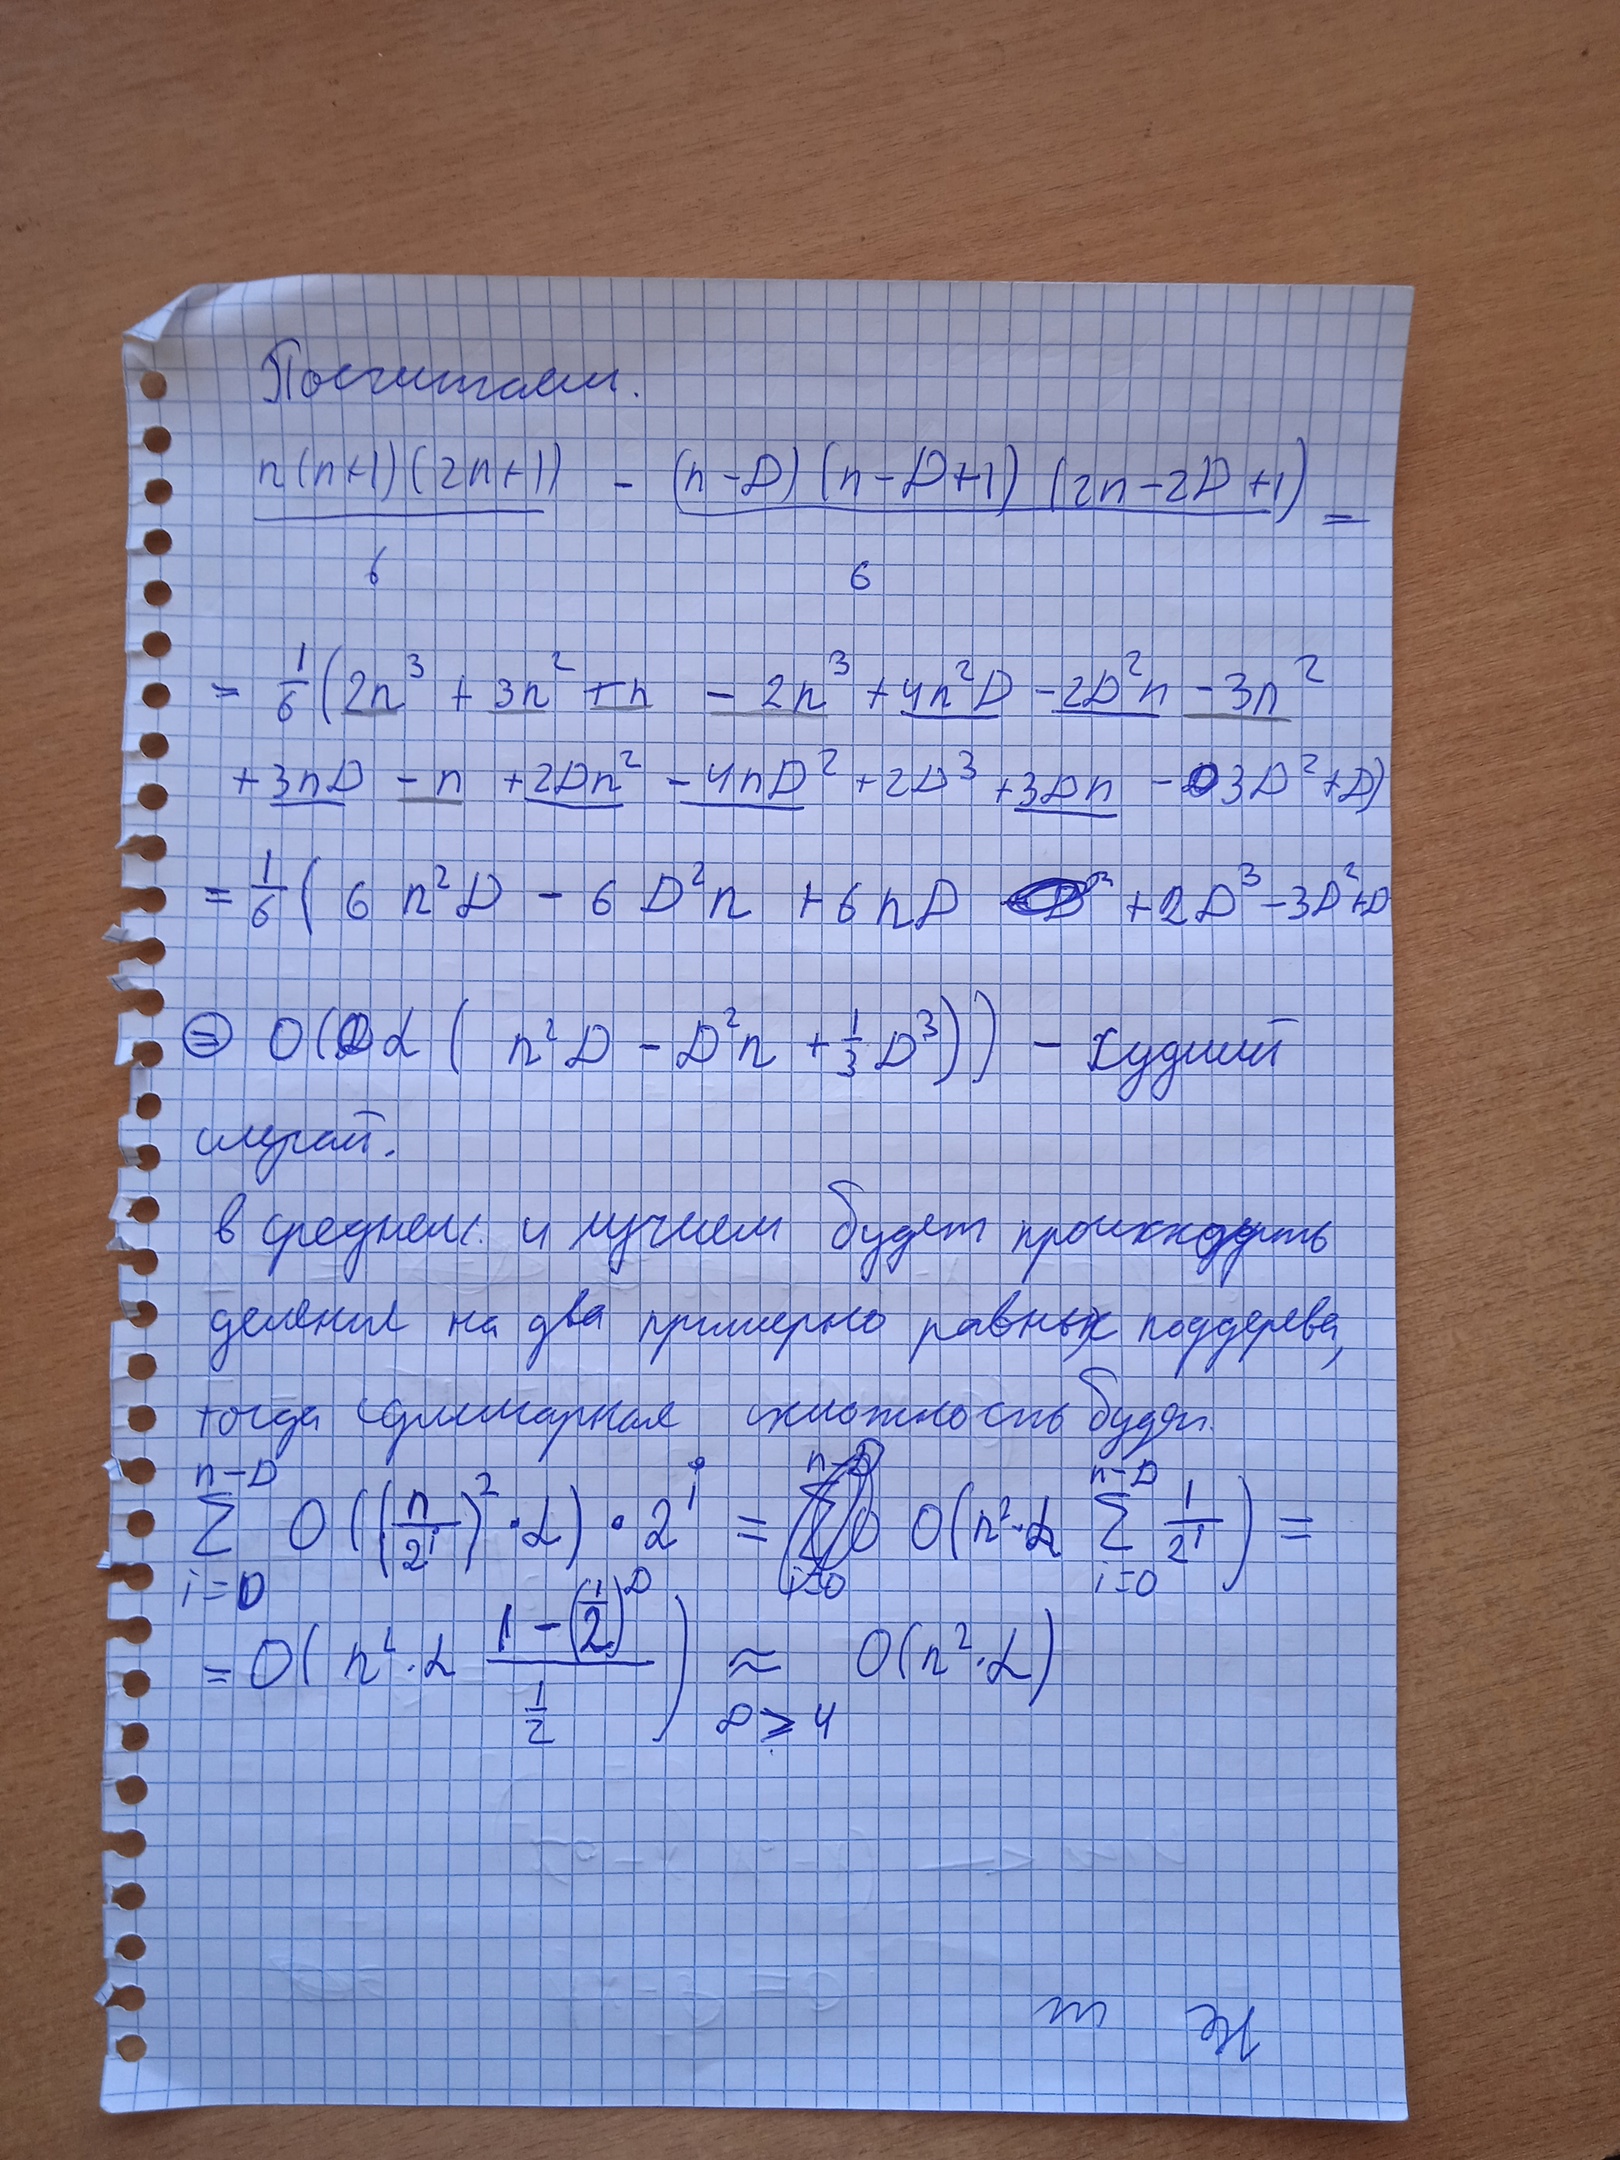 Посчитаем.
n(n+1)(2n+1)/6 - (n-D)(n-D+1)(2n-2D+1)/6 =
= 1/6 (2n³ + 3n² + n - 2n³ + 4n²D - 2D²n - 3n²
+ 3nD - n + 2Dn² - 4nD² + 2D³ + 3Dn - 3D² + D)
= 1/6 ( 6 n²D - 6 D²n + 6nD + 2D³ - 3D² + D
= O( L ( n²D - D²n + 1/3 D³)) - худший
случай.
в среднем и лучшем будет происходить
деления на два примерно равных поддерева,
тогда суммарная сложность будет.
∑_{i=0}^{n-D} O((n/2^i)² · L) · 2^i = O(n² · L ∑_{i=0}^{n-D} 1/2^i) =
= O( n² · L (1-(1/2)^D)/(1/2) ) ≈_{D ⩾ 4} O(n² · L)